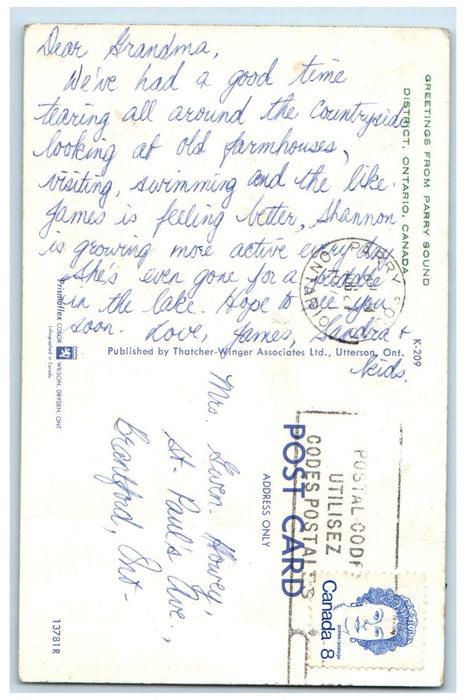 Dear Grandma,
We've had a good time
tearing all around the countryside
looking at old farmhouses,
visiting, swimming and the like.
James is feeling better, Shannon
is growing more active every day
She's even gone for a paddle
in the lake. Hope to see you
soon. Love, James, Sandra &
kids.
GREETINGS FROM PARRY SOUND
DISTRICT, ONTARIO, CANADA
K-209
PARRY SO
ONTARIO
Prismaflex COLOR
Lithographed in Canada
WILSON, DRYDEN, ONT.
Published by Thatcher-Winger Associates Ltd., Utterson, Ont.
POST CARD
ADDRESS ONLY
POSTAL CODE
UTILISEZ
CODES POSTAUX
Canada 8
postes-postage
Mrs. Gwen Howey,
St. Paul's Ave.,
Brantford, Ont.
13781R